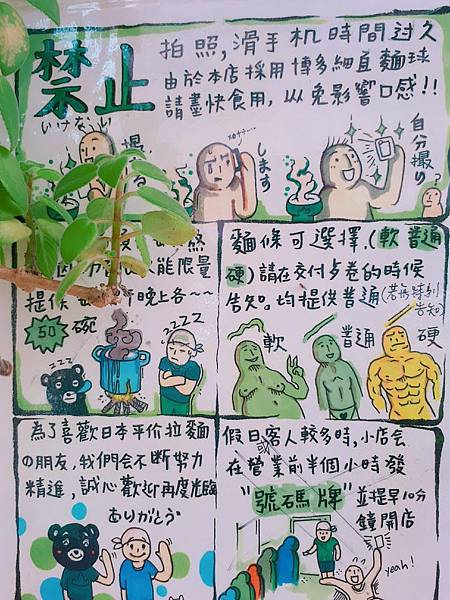 禁止
いけない
拍照,滑手机時間过久
由於本店採用博多細直麵球
請盡快食用,以免影響口感!!
します
自分撮り
?
能限量
提供
晚上各~
50碗
zzz
zzzz
麵條可選擇,(軟 普通
硬)請在交付步卷的時候
告知。均提供普通(若無特別
告知)
軟 普通 硬
為了喜歡日本平价拉麵
の朋友,我們会不断努力
精進,誠心歡迎再度光臨
ありがとう
假日客人較多時,小店会
在營業前半個小時發
"號碼牌"並提早10分
鐘開店
yeah!